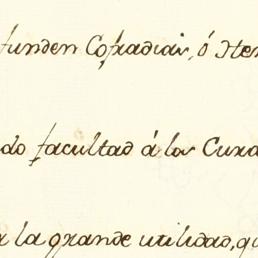 funden Cofradias, ó Her
do facultad á los Cura
a la grande utilidad, qu